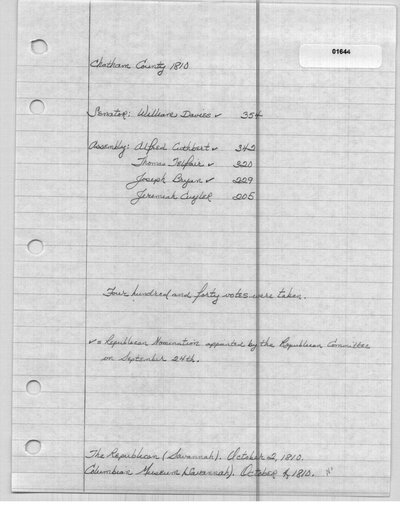 01644
Chatham County 1810
Senator: William Davies ✓ 354
Assembly: Alfred Cuthbert ✓ 342
Thomas Telfair ✓ 320
Joseph Bryan ✓ 229
Jeremiah Cuyler 205
Four hundred and forty votes were taken.
✓ = Republican Nomination appointed by the Republican Committee
on September 24th.
The Republican (Savannah). October 2, 1810.
Columbian Museum (Savannah). October 4, 1810.